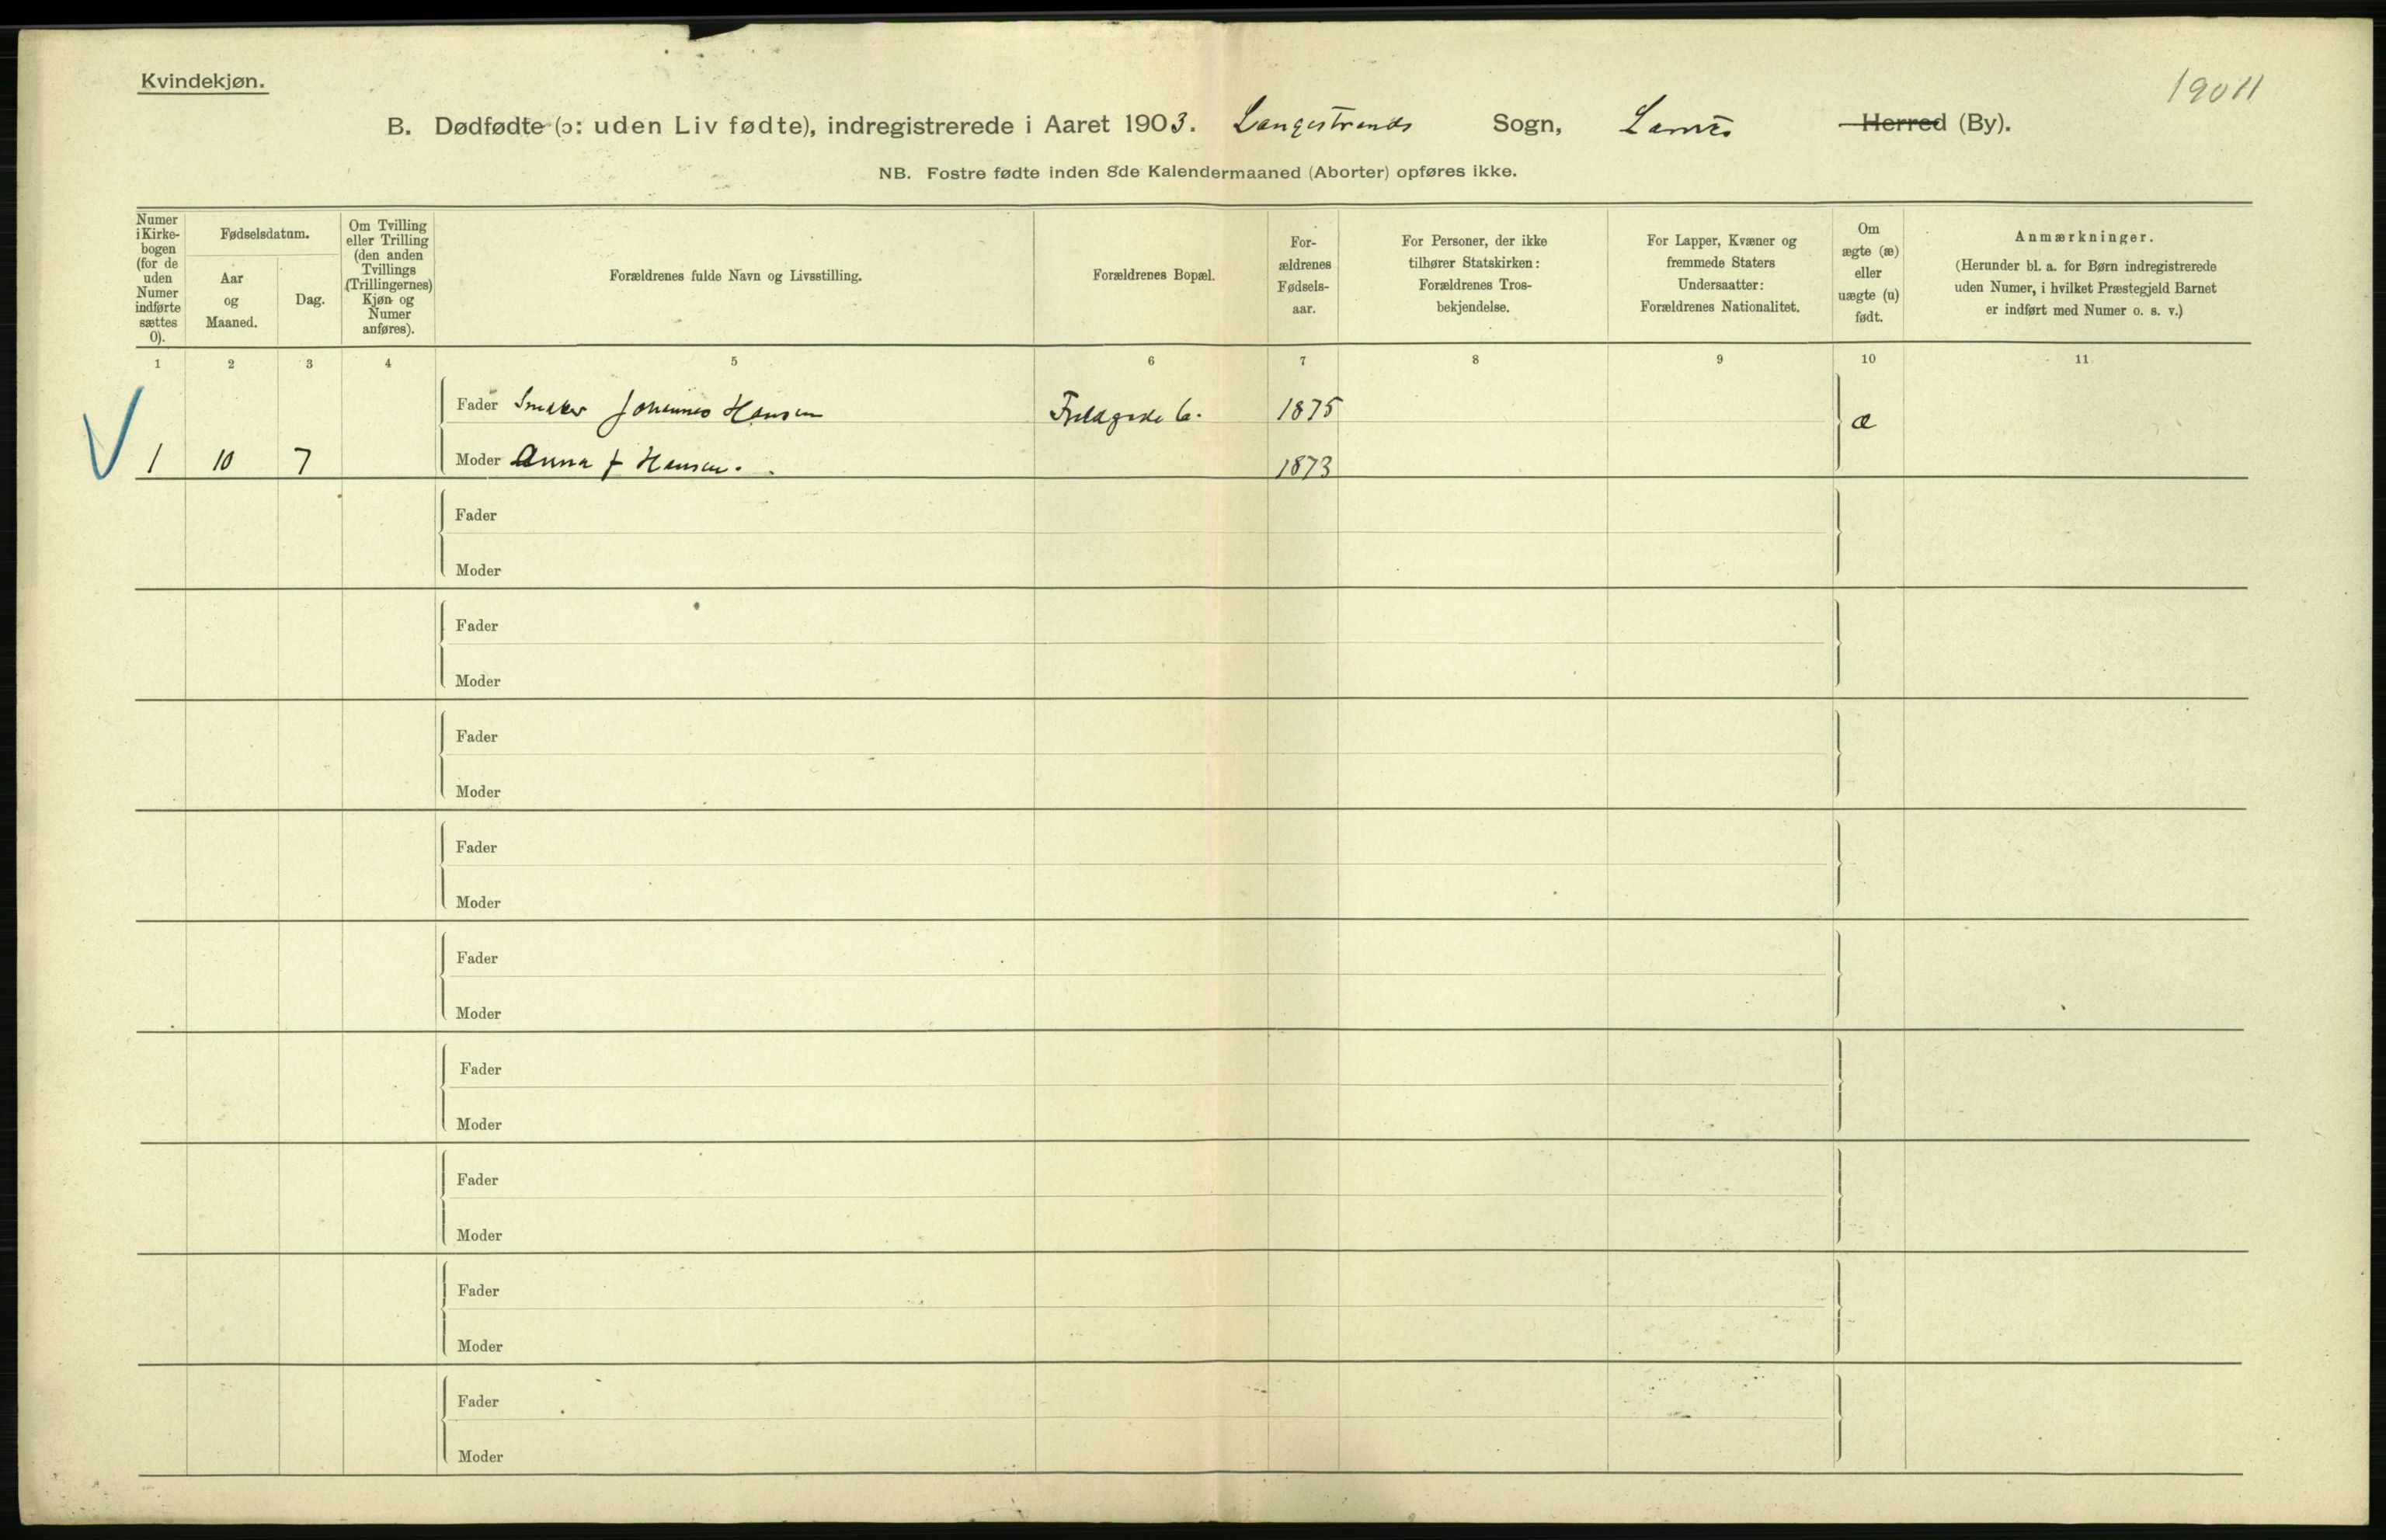 Kvindekjøn.
19011
B. Dødfødte (ɔ: uden Liv fødte), indregistrerede i Aaret 1903. Langestrands Sogn, Larviks Herred (By).
NB. Fostre fødte inden 8de Kalendermaaned (Aborter) opføres ikke.
Numer i Kirke-bogen (for de uden Numer indførte sættes 0).
Fødselsdatum.
Aar og Maaned.
Dag.
Om Tvilling eller Trilling (den anden Tvillings (Trillingernes) Kjøn og Numer anføres).
Forældrenes fulde Navn og Livsstilling.
Forældrenes Bopæl.
For-ældrenes Fødsels-aar.
For Personer, der ikke tilhører Statskirken: Forældrenes Tros-bekjendelse.
For Lapper, Kvæner og fremmede Staters Undersaatter: Forældrenes Nationalitet.
Om ægte (æ) eller uægte (u) født.
Anmærkninger.
(Herunder bl. a. for Børn indregistrerede uden Numer, i hvilket Præstegjeld Barnet er indført med Numer o. s. v.)
1 2 3 4 5 6 7 8 9 10 11
Fader Johannes Hansen 1875 æ
1 10 7 Moder Anna f Hansen. 1873
Fader
Moder
Fader
Moder
Fader
Moder
Fader
Moder
Fader
Moder
Fader
Moder
Fader
Moder
Fader
Moder
Fader
Moder